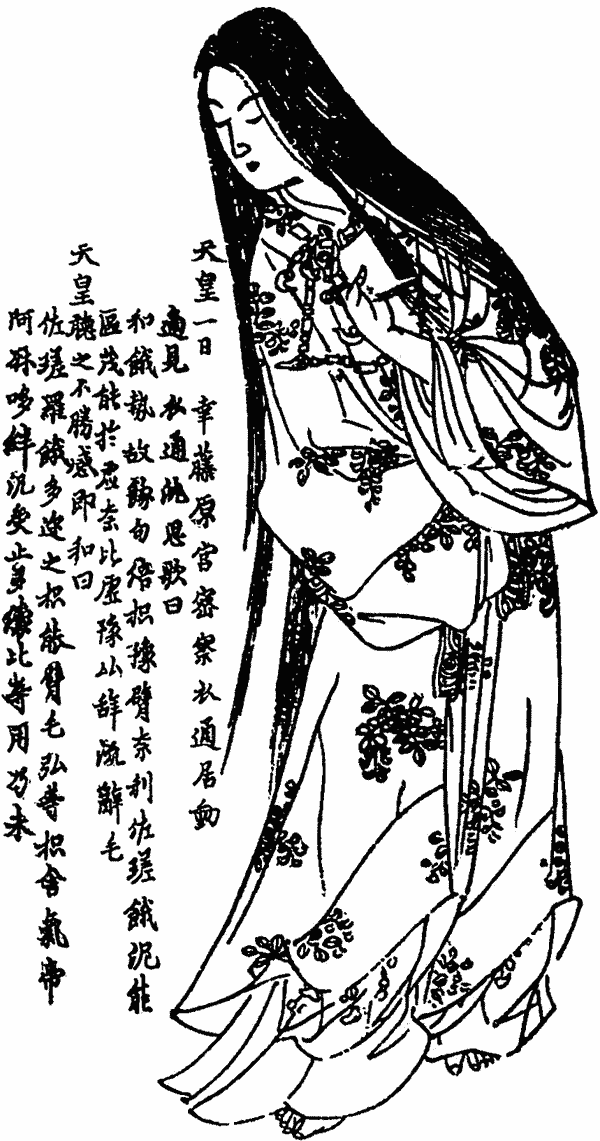 天皇一日 幸藤原宮密察衣通居動
適見衣通沌思歌曰
和餓勢故餓句倍枳豫臂奈利佐瑳餓泥能
區茂能於虚奈比虚豫比辞流辭毛
天皇聴之不勝感即和曰
佐瑳羅餓多迩之枳能臂毛弘等枳舎氣帝
阿麻哆絆泥受止多儾比等用能未